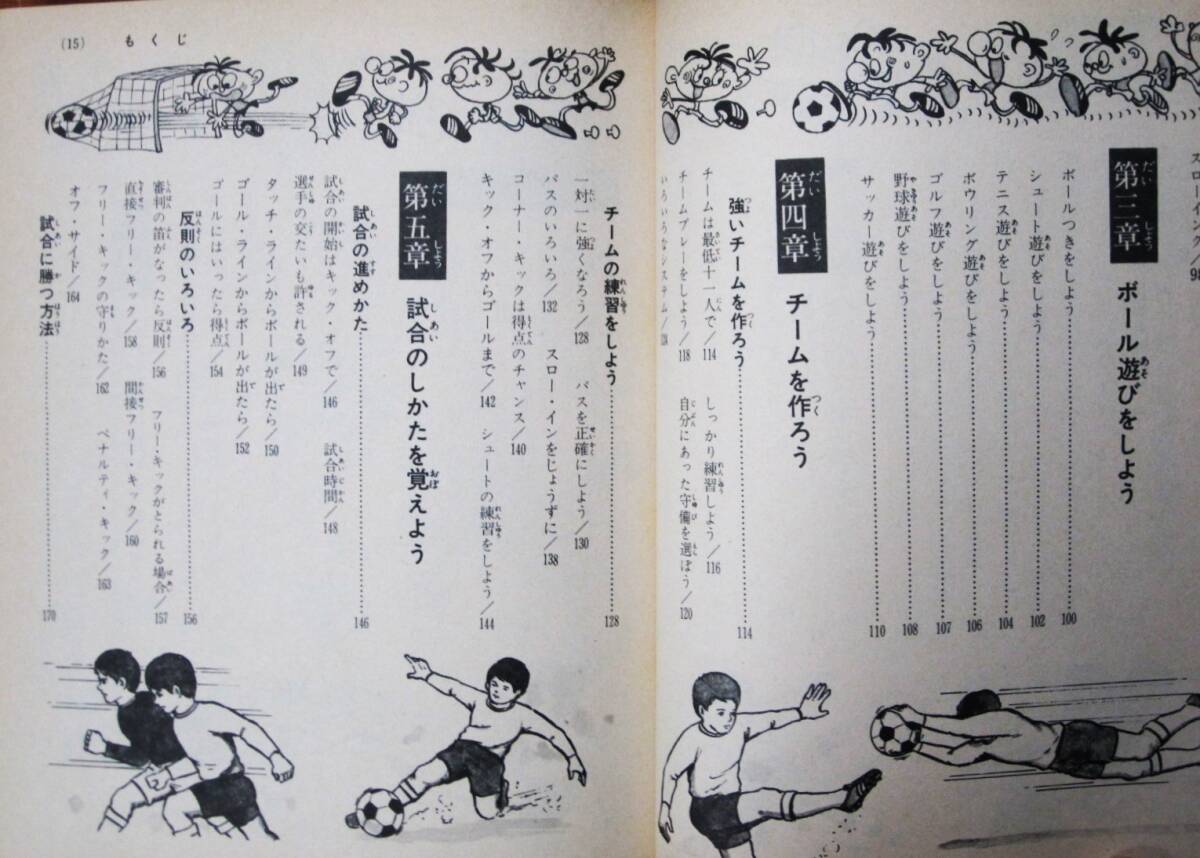 第三章 ボール遊びをしよう
ボールつきをしよう 100
シュート遊びをしよう 102
テニス遊びをしよう 104
ボウリング遊びをしよう 106
ゴルフ遊びをしよう 107
野球遊びをしよう 108
サッカー遊びをしよう 110
第四章 チームを作ろう
強いチームを作ろう 114
チームは最低十一人で/114 しっかり練習しよう/116
チームプレーをしよう/118 自分にあった守備を選ぼう/120
(15) もくじ
チームの練習をしよう 128
一対一に強くなろう/128 パスを正確にしよう/130
パスのいろいろ/132 スロー・インをじょうずに/138
コーナー・キックは得点のチャンス/140
キック・オフからゴールまで/142 シュートの練習をしよう/144
第五章 試合のしかたを覚えよう
試合の進めかた 146
試合の開始はキック・オフで/146 試合時間/148
選手の交たいも許される/149
タッチ・ラインからボールが出たら/150
ゴール・ラインからボールが出たら/152
ゴールにはいったら得点/154
反則のいろいろ 156
審判の笛がなったら反則/156 フリー・キックがとられる場合/157
直接フリー・キック/158 間接フリー・キック/160
フリー・キックの守りかた/162 ペナルティ・キック/163
オフ・サイド/164
試合に勝つ方法 170